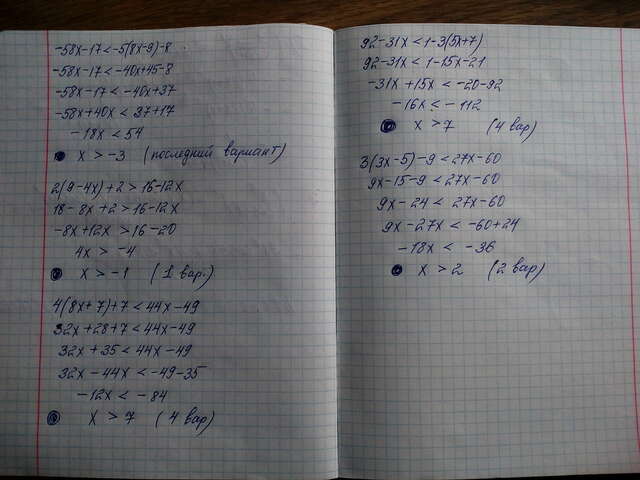 -58x-17<-5(8x-9)-8
-58x-17<-40x+45-8
-58x-17<-40x+37
-58x+40x<37+17
-18x<54
x>-3 (последний вариант)
2(9-4x)+2>16-12x
18-8x+2>16-12x
-8x+12x>16-20
4x>-4
x>-1 (1 вар.)
4(8x+7)+7<44x-49
32x+28+7<44x-49
32x+35<44x-49
32x-44x<-49-35
-12x<-84
x>7 (4 вар)
92-31x<1-3(5x+7)
92-31x<1-15x-21
-31x+15x<-20-92
-16x<-112
x>7 (4 вар)
3(3x-5)-9<27x-60
9x-15-9<27x-60
9x-24<27x-60
9x-27x<-60+24
-18x<-36
x>2 (2 вар)